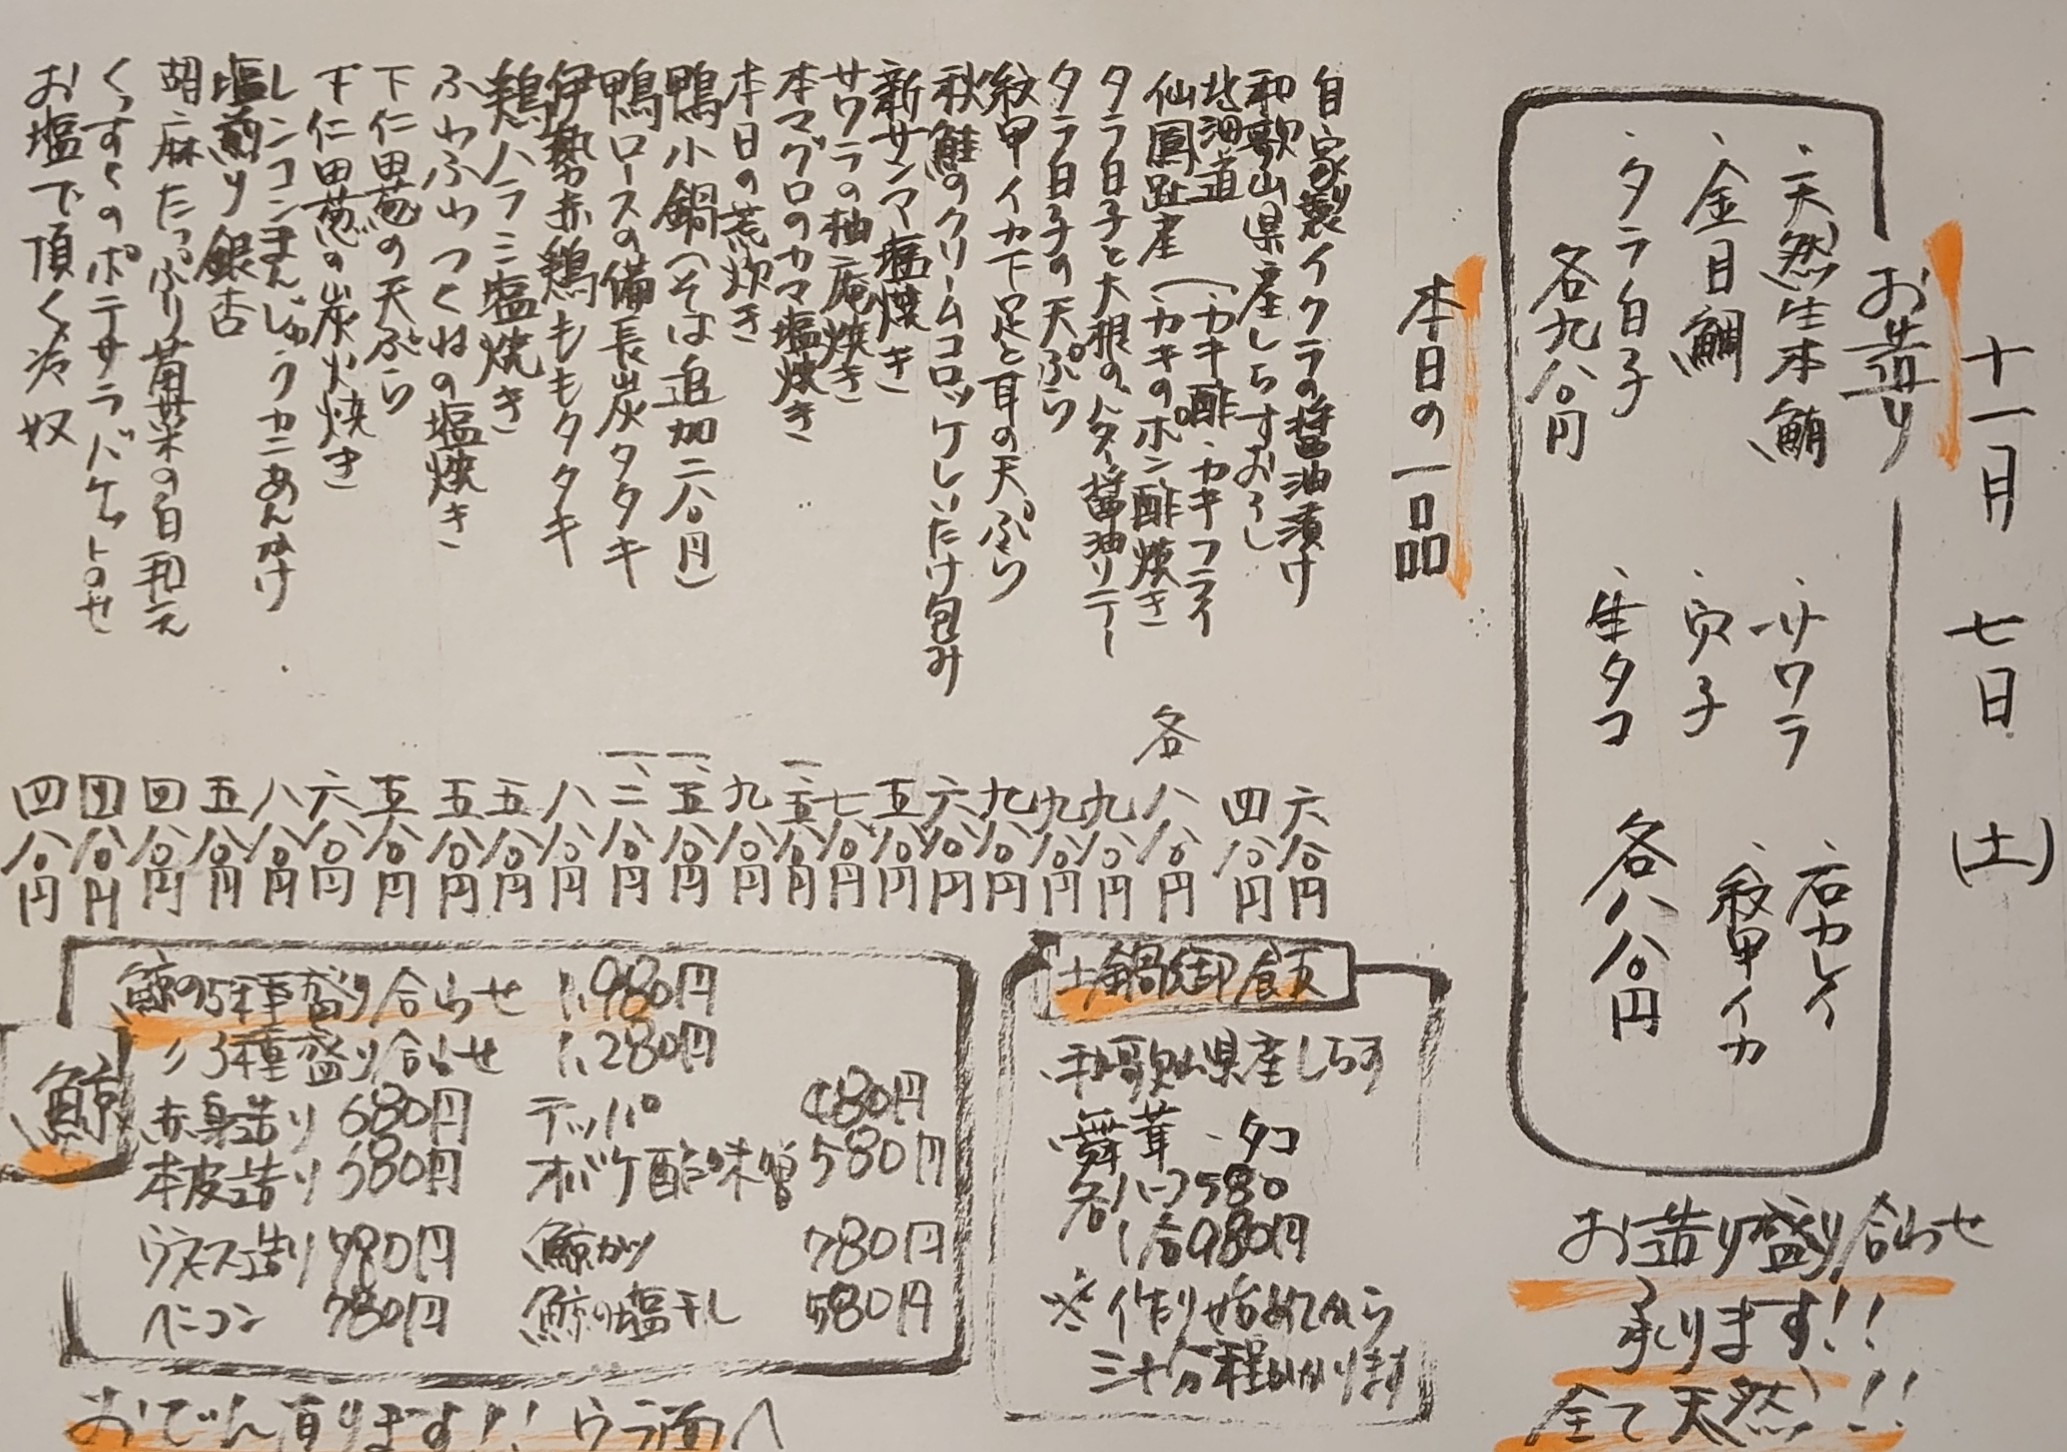 十一月 七日 (土)
お造り
・天然生本鮪 ・サワラ ・石カレイ
・金目鯛 ・穴子 ・紋甲イカ
・タラ白子 ・生タコ
各九八〇円 各八八〇円
お造り盛り合わせ
承ります!!
全て天然!!
本日の一品
自家製イクラの醤油漬け 六八〇円
和歌山県産しらすおろし 四八〇円
北海道
仙鳳趾産 (・カキ酢・カキフライ
・カキのポン酢焼き 各八八〇円
タラ白子と大根のバター醤油ソテー 九八〇円
タラ白子の天ぷら 九八〇円
紋甲イカ下足と耳の天ぷら 九八〇円
秋鮭のクリームコロッケしいたけ包み 六八〇円
新サンマ塩焼き 五八〇円
サワラの柚庵焼き 七八〇円
本マグロのカマ塩焼き 一、五八〇円
本日の荒炊き 九八〇円
鴨小鍋(そば追加二八〇円) 一、五八〇円
鴨ロースの備長炭タタキ 一、二八〇円
伊勢赤鶏ももタタキ 八八〇円
鶏ハラミ塩焼き 五八〇円
ふわふわつくねの塩焼き 五八〇円
下仁田葱の天ぷら 五八〇円
下仁田葱の炭火焼き 六八〇円
レンコンまんじゅうカニあんかけ 八八〇円
塩煎り銀杏 五八〇円
胡麻たっぷり菊菜の白和え 四八〇円
くずしのポテサラバケットのせ 四八〇円
お塩で頂く冷奴 四八〇円
土鍋御飯
・和歌山県産しらす
・舞茸 ・タコ
各ハーフ580
1合980円
※作り始めてから
三十分程かかります
鯨
鯨の5種盛り合わせ 1,980円
〃3種盛り合わせ 1,280円
赤身造り 680円 テッパ 980円
本皮造り 580円 オバケ酢味噌 580円
ウネス造り 780円 鯨カツ 780円
ベーコン 780円 鯨の塩干し 580円
おでん有ります!! ウラ面へ